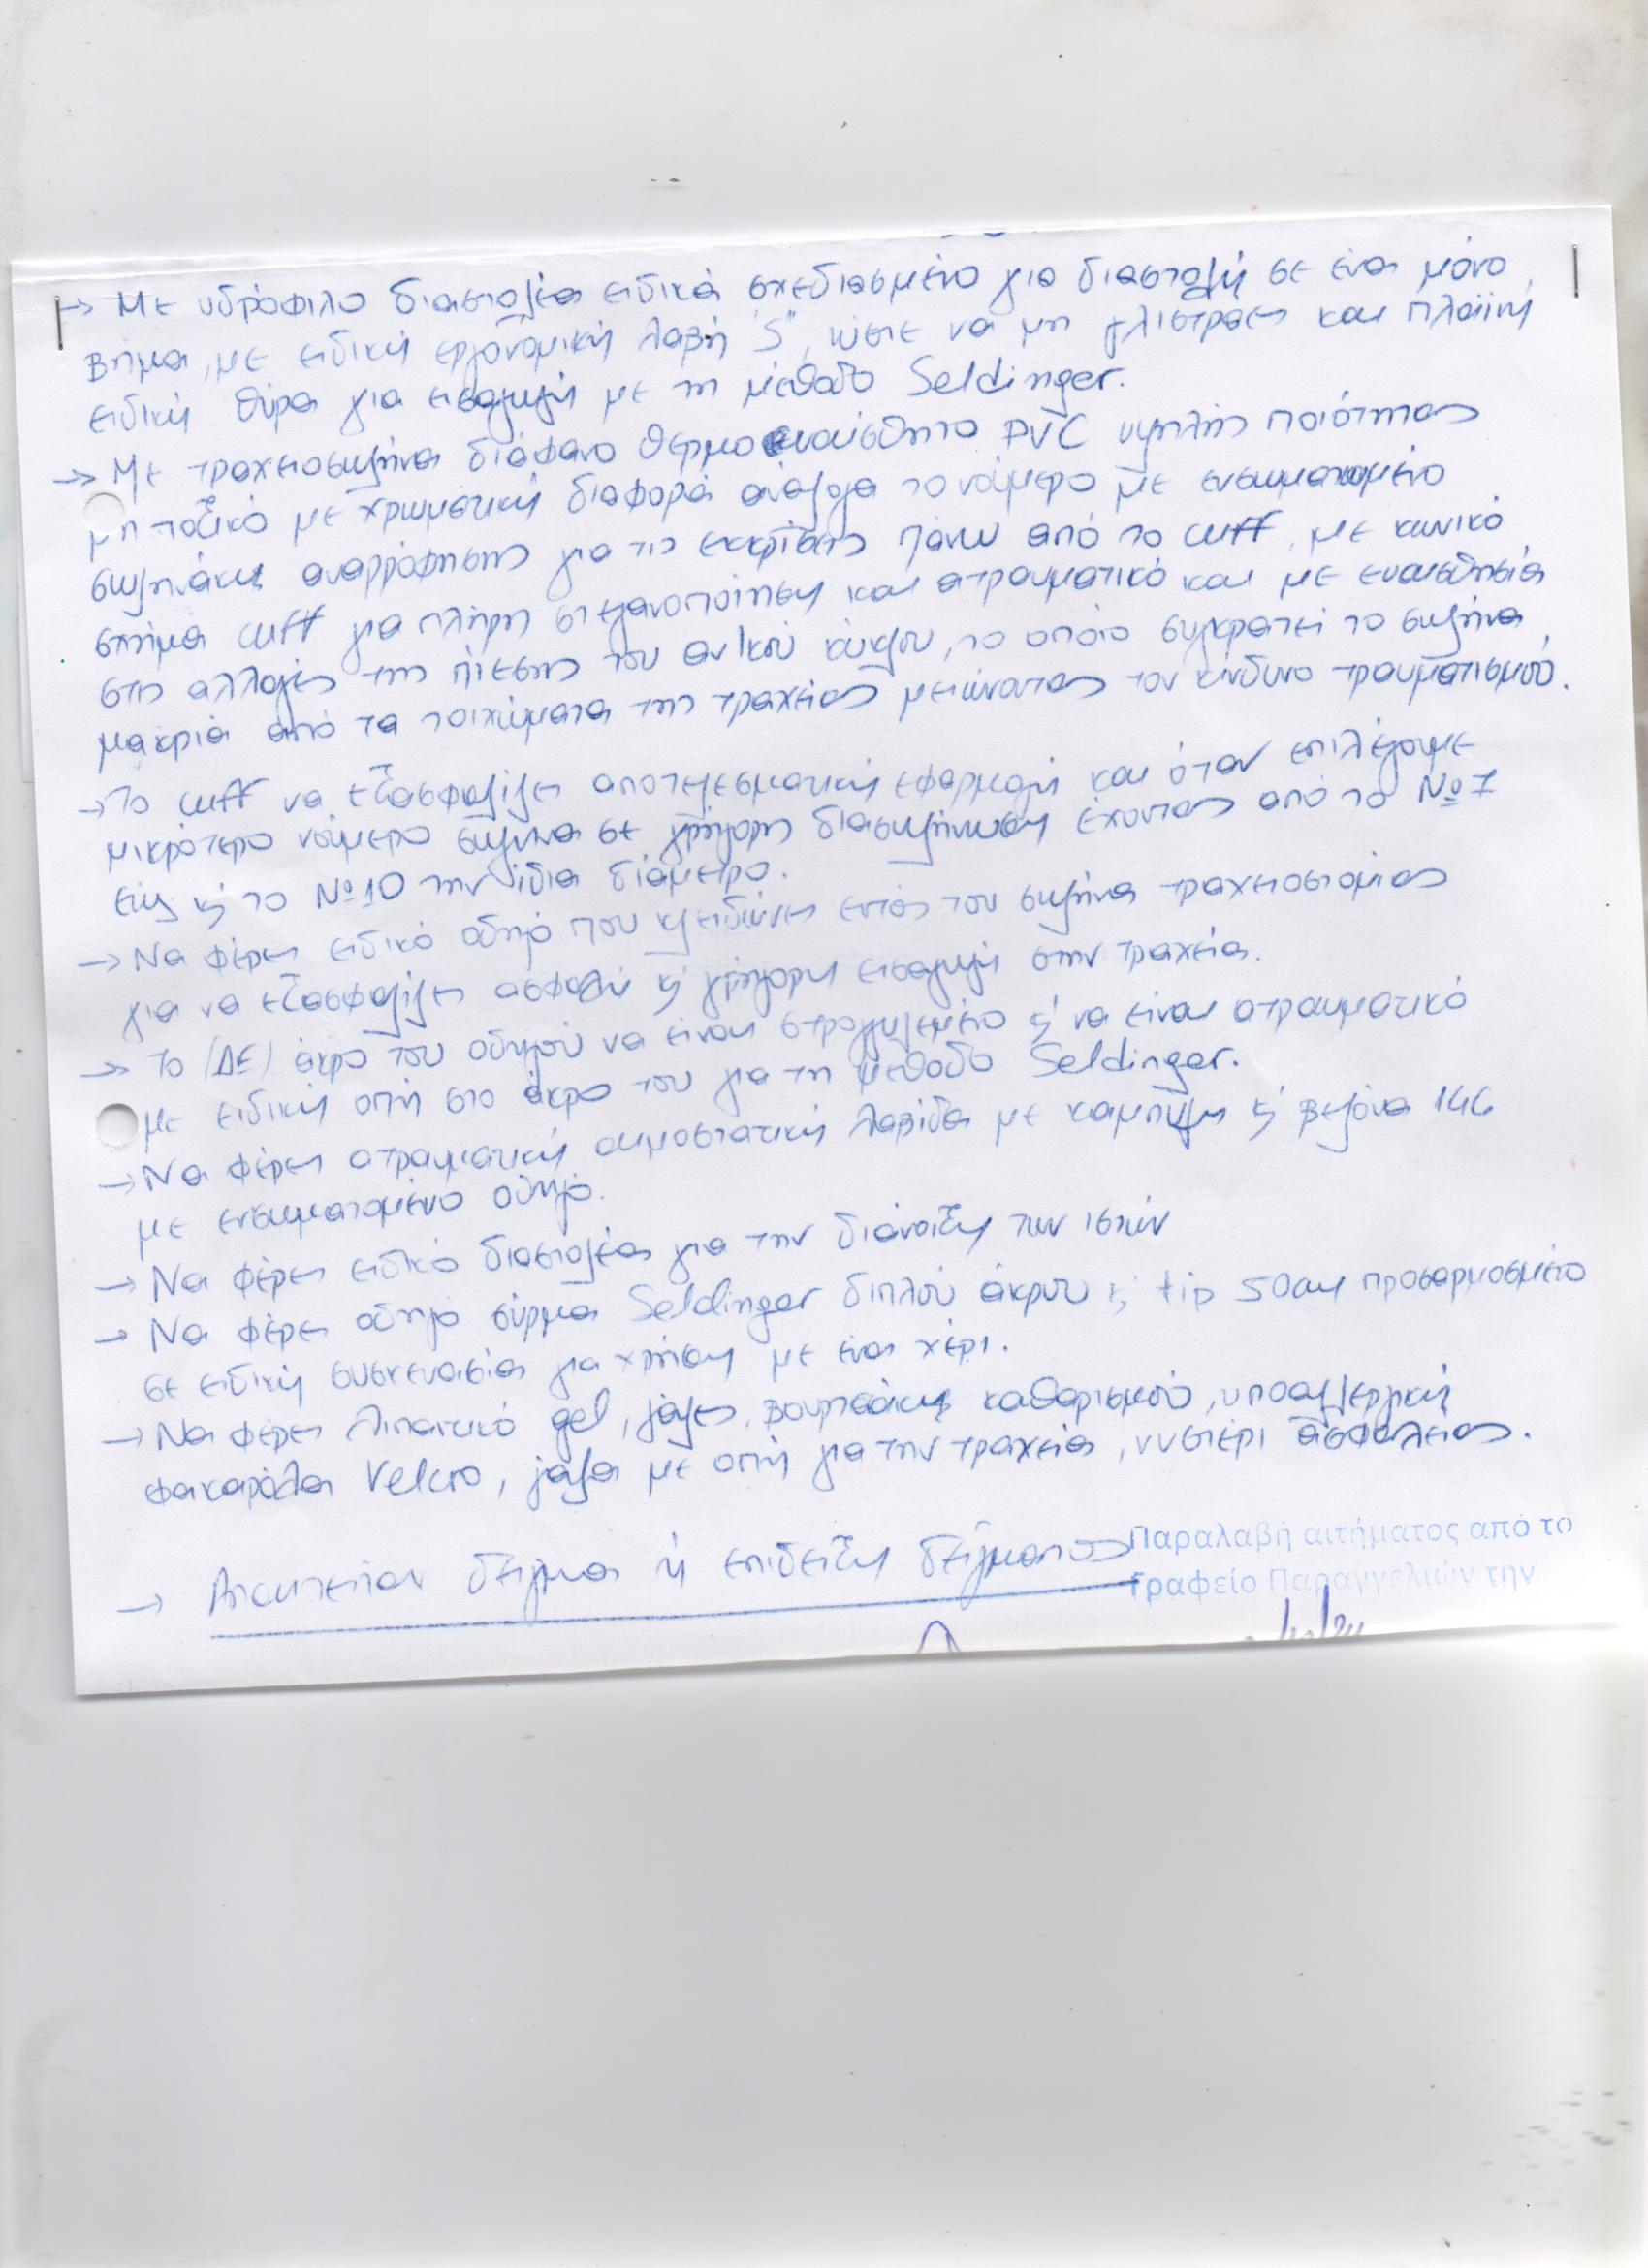 → Με υδρόφιλο διαστολέα ειδικά σχεδιασμένο για διαστολή σε ένα μόνο
βήμα, με ειδική εργονομική λαβή "S", ώστε να μη γλιστράει και πλαϊνή
ειδική θύρα για εισαγωγή με τη μέθοδο Seldinger.
→ Με τραχειοσωλήνα διάφανο θερμοευαίσθητο PVC υψηλής ποιότητας
μη τοξικό με χρωματική διαφορά ανάλογα το νούμερο με ενσωματωμένο
σωληνάκι αναρρόφησης για τις εκκρίσεις πάνω από το cuff, με κωνικό
σχήμα cuff για πλήρη στεγανοποίηση και ατραυματικό και με ευαισθησία
στις αλλαγές της πίεσης του αν/κού κύκλου, το οποίο συγκρατεί το σωλήνα
μακριά από τα τοιχώματα της τραχείας μειώνοντας τον κίνδυνο τραυματισμού.
→ Το cuff να εξασφαλίζει αποτελεσματική εφαρμογή και όταν επιλέγουμε
μικρότερο νούμερο σωλήνα σε γρήγορη διασωλήνωση έχοντας από το Νο 7
έως ϗ το Νο 10 την ίδια διάμετρο.
→ Να φέρει ειδικό οδηγό που κλειδώνει εντός του σωλήνα τραχειοστομίας
για να εξασφαλίζει ασφαλή ϗ γρήγορη εισαγωγή στην τραχεία.
→ Το (ΔΕ) άκρο του οδηγού να είναι στρογγυλεμένο ϗ να είναι ατραυματικό
με ειδική οπή στο άκρο του για τη μέθοδο Seldinger.
→ Να φέρει ατραυματική αιμοστατική λαβίδα με καμπύλη ϗ βελόνα 14G
με ενσωματομένο οδηγό.
→ Να φέρει ειδικό διαστολέα για την διάνοιξη των ιστών
→ Να φέρει οδηγό σύρμα Seldinger διπλού άκρου ϗ tip 50cm προσαρμοσμένο
σε ειδική συσκευασία για χρήση με ένα χέρι.
→ Να φέρει λιπαντικό gel, γάζες, βουρτσάκι καθαρισμού, υποαλλεργική
φακαρόλα Velcro, γάζα με οπή για την τραχεία, νυστέρι ασφαλείας.
→ Απαιτείται δείγμα ή επιδειξη δείγματος
Παραλαβή αιτήματος από το
Γραφείο Παραγγελιών την